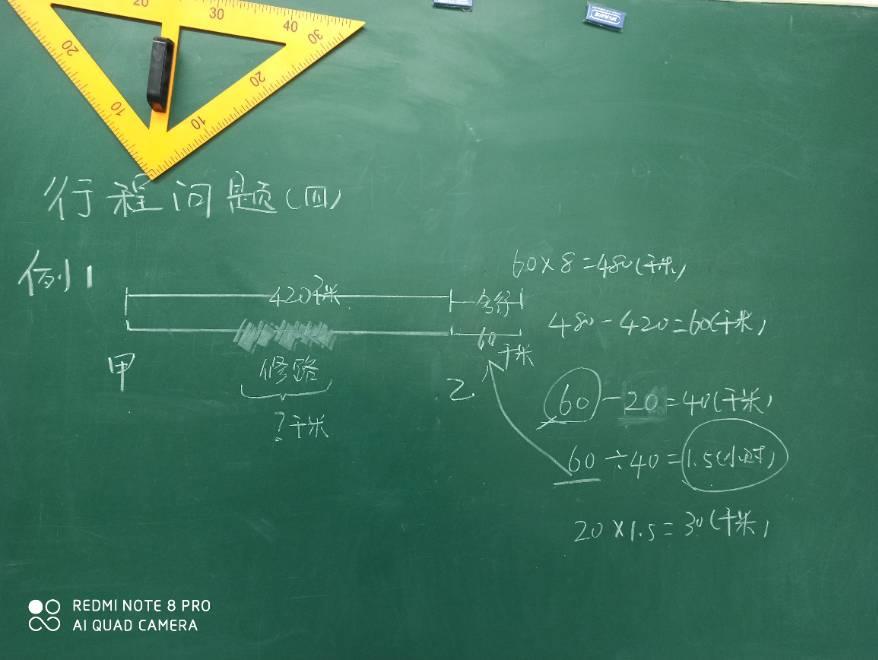 20 30 40 30
20 10 10 20
行程问题(四)
例1
420千米
多行
60
千米
甲
修路
?千米
乙
60×8=480(千米)
480-420=60(千米)
60-20=40(千米)
60÷40=1.5(小时)
20×1.5=30(千米)
REDMI NOTE 8 PRO
AI QUAD CAMERA